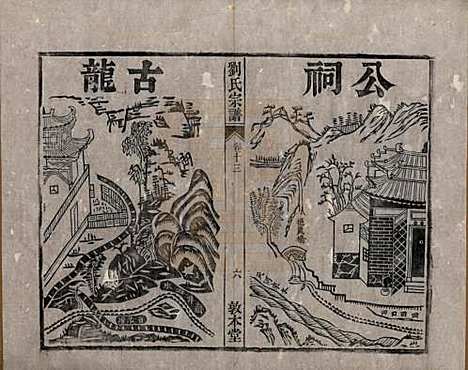 公祠
劉氏宗譜
卷十三
六
敦本堂
古龍